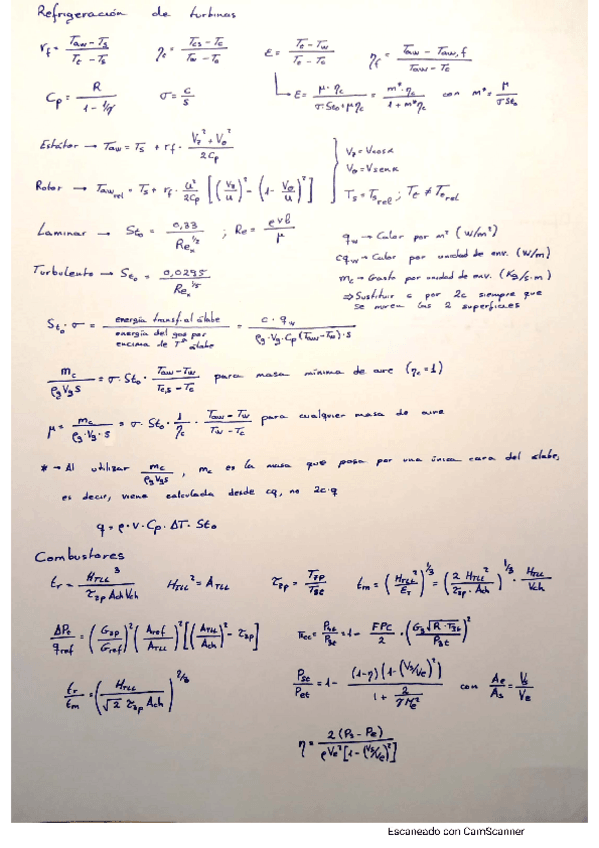 Refrigeración de turbinas
r_f = (T_aw - T_s)/(T_c - T_s)   η_c = (T_cs - T_c)/(T_w - T_c)   ε = (T_e - T_w)/(T_e - T_c)   η_f = (T_aw - T_aw,f)/(T_aw - T_c)
C_p = R/(1 - 1/γ)   σ = c/s   ε = μ·η_c/(σ·St_o + μη_c) = m*·η_c/(1 + m*η_c) con m* = μ/(σ St_o)
Estátor → T_aw = T_s + r_f · (V_z² + V_θ²)/(2C_p)
V_z = V cos α
V_θ = V sen α
Rotor → T_aw rel = T_s + r_f · u²/(2C_p) [(V_z/u)² - (1 - V_θ/u)²]
T_s = T_s rel ; T_e ≠ T_e rel
Laminar → St_o = 0,33/Re_x^(1/2) ; Re = ρvl/μ
q_w → Calor por m² (W/m²)
cq_w → Calor por unidad de env. (W/m)
Turbulento → St_o = 0,0295/Re_x^(1/5)
m_c → Gasto por unidad de env. (Kg/s·m)
⇒ Sustituir c por 2c siempre que
se miren las 2 superficies
St_o · σ = energía transf. al álabe/energía del gas por encima de Tª álabe = c · q_w/(ρ_g · V_g · C_p (T_aw - T_w) · s)
m_c/(ρ_g V_g s) = σ · St_o · (T_aw - T_w)/(T_c,s - T_c) para masa mínima de aire (η_c = 1)
μ = m_c/(ρ_g · V_g · s) = σ · St_o · 1/η_c · (T_aw - T_w)/(T_w - T_c) para cualquier masa de aire
* → Al utilizar m_c/(ρ_g V_g s), m_c es la masa que pasa por una única cara del álabe,
es decir, viene calculada desde cq, no 2c·q
q = ρ · V · C_p · ΔT · St_o
Combustores
t_r = H_TLL³/(τ_zp A_ch V_ch)   H_TLL² = A_TLL   τ_zp = T_zp/T_3t   t_m = (H_TLL²/E_T)^(1/3) = (2 H_TLL²/(τ_zp · A_ch))^(1/3) · H_TLL/V_ch
ΔP_t/q_ref = (G_zp/G_ref)² (A_ref/A_TLL)² [(A_TLL/A_ch)² - τ_zp]   π_cc = P_4t/P_3t = 1 - FPC/2 · (G_3 √(R·T_3t)/P_3t)²
t_r/t_m = (H_TLL/(√2 τ_zp A_ch))^(2/3)   P_st/P_et = 1 - (1-η)(1 - (V_s/V_e)²)/(1 + 2/(γM_e²)) con A_e/A_s = V_s/V_e
η = 2(P_s - P_e)/(ρV_e² [1 - (V_s/V_e)²])
Escaneado con CamScanner